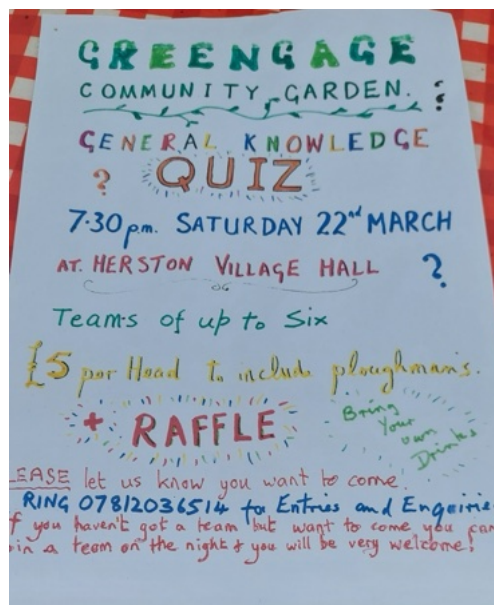 GREENGAGE
COMMUNITY GARDEN.
GENERAL KNOWLEDGE
? QUIZ
7.30pm. SATURDAY 22nd MARCH
AT. HERSTON VILLAGE HALL ?
Teams of up to Six
£5 per Head to include ploughman's.
+ RAFFLE
Bring
Your
own
Drinks
EASE let us know you want to come.
RING 07812036514 for Entries and Enquirie
f you haven't got a team but want to come you can
in a team on the night & you will be very welcome!